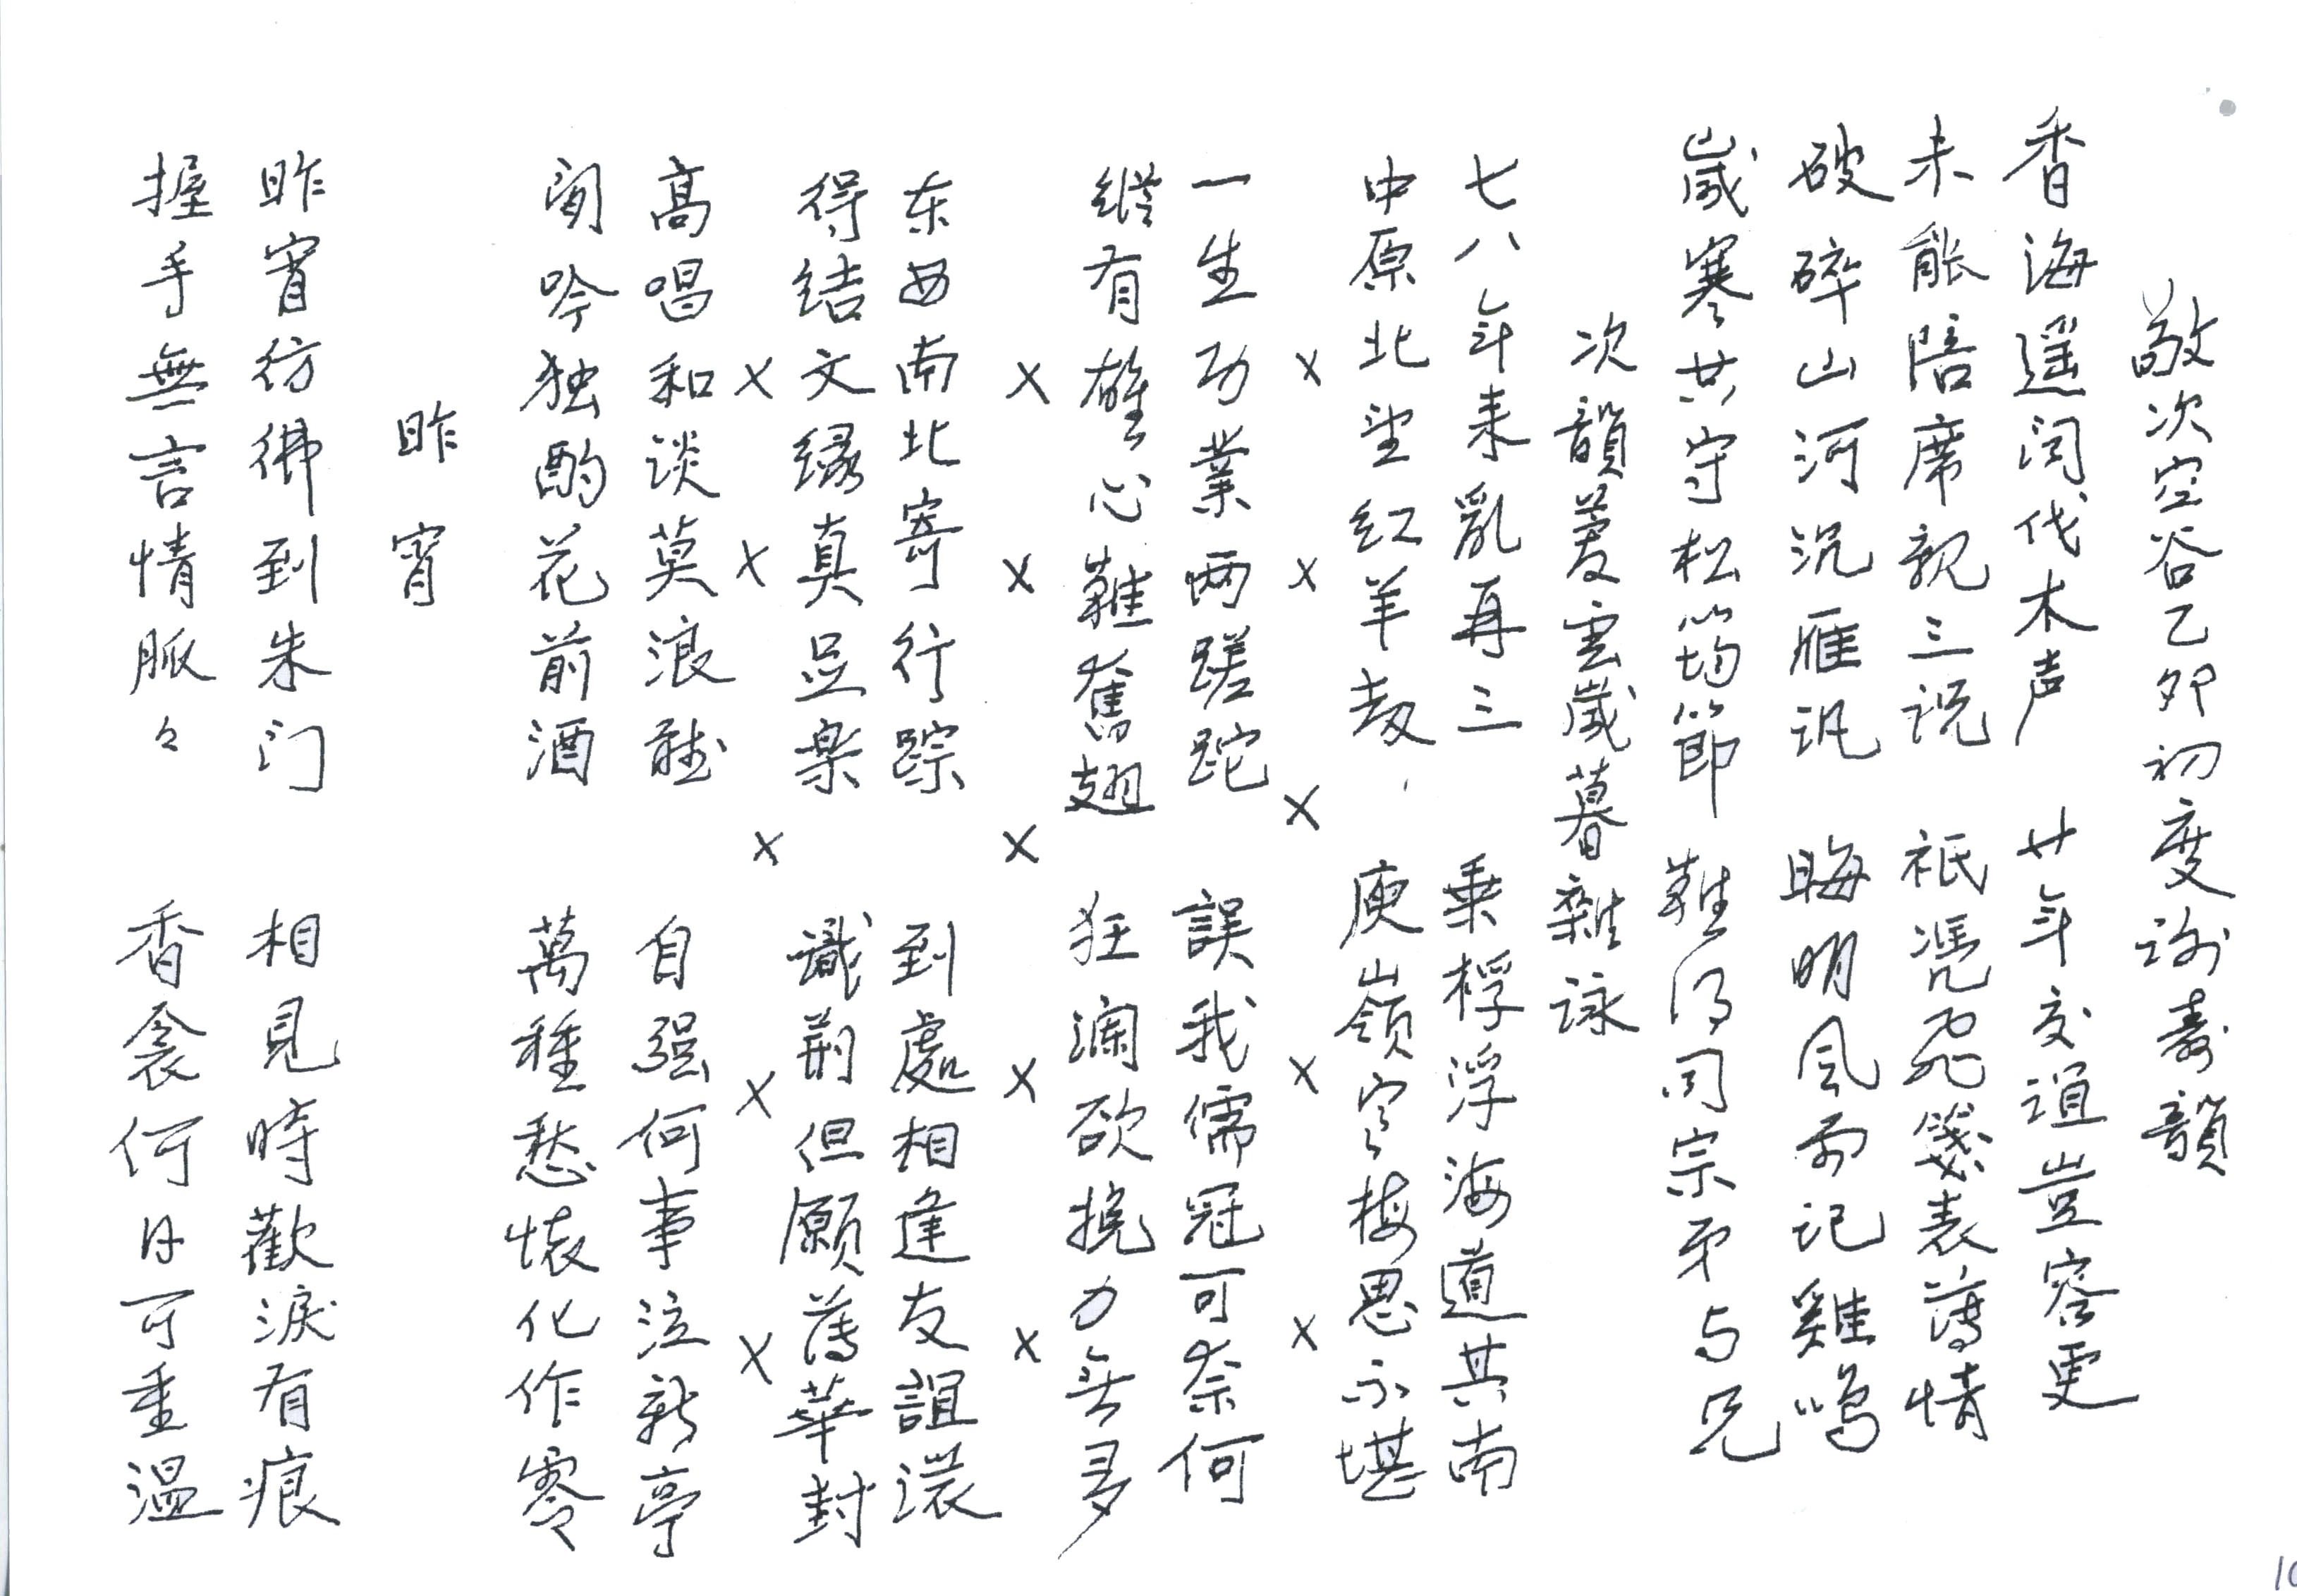 敬次空谷乙卯初度謝壽韻
香海遥闻伐木声 廿年交谊豈容更
未能陪席親三祝 祇凭飛箋表薄情
破碎山河沉雁讯 晦明风雨记雞鸣
歲寒共守松筠節 難得同宗弟与兄
次韻菱雲歲暮雜詠
七八年来亂再三 乗桴浮海道其南
中原北望红羊劫 庾嶺寒梅思不堪
x x x x x
一生功業两蹉跎 誤我儒冠可奈何
縱有雄心難奮翅 狂澜欲挽力無多
x x x x x
东西南北寄行踪 到處相逢友誼濃
得结文缘真足楽 識荊但願薄華封
x x x x x
高唱和谈莫浪聽 自强何事泣新亭
閒吟独酌花前酒 萬種愁懐化作零
昨宵
昨宵彷彿到朱门 相見時歡淚有痕
握手無言情脈々 香衾何日可重温
10